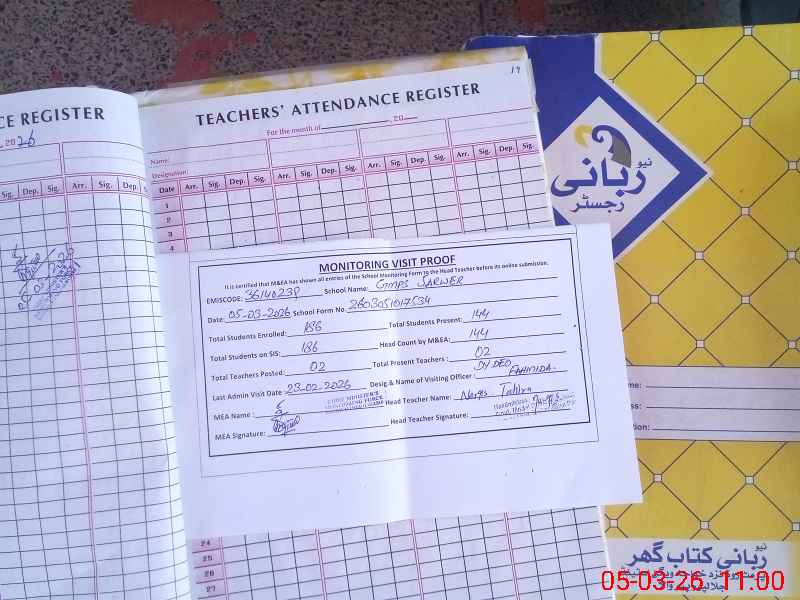 CE REGISTER
, 2026
Sig. Dep. Sig. Arr. Sig. Dep. S
19
TEACHERS' ATTENDANCE REGISTER
For the month of , 20
Name:
Designation:
Date Arr. Sig. Dep. Sig. Arr. Sig. Dep. Sig. Arr. Sig. Dep. Sig. Arr. Sig. Dep. Sig.
1
2
3
4
MONITORING VISIT PROOF
It is certified that M&EA has shown all entries of the School Monitoring Form to the Head Teacher before its online submission.
EMISCODE: 36140239 School Name: GMPS SARWER
Date: 05-03-2026 School Form No. 2603051017534
Total Students Enrolled: 186 Total Students Present: 144
Total Students on SIS: 186 Head Count by M&EA: 144
Total Teachers Posted: 02 Total Present Teachers : 02
Last Admin Visit Date 23-02-2026 Desig.& Name of Visiting Officer : DYDEO FAHMIDA.
MEA Name : CHIEF MINISTER'S Head Teacher Name: Narges Tahira
MONITORING FORCE
MEA Signature: Head Teacher Signature:
24
25
26
27
نیو
ربانی
رجسٹر
me:
ss:
tion:
نیو
ربانی کتاب گھر
05-03-26 11:00